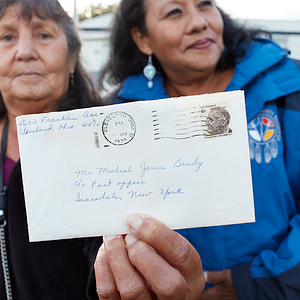 5262 Franklin Ave
Cleveland, Ohio
CLEVELAND
PM
Mr Michael James Brady
c/o Post office
Scarsdale, New York